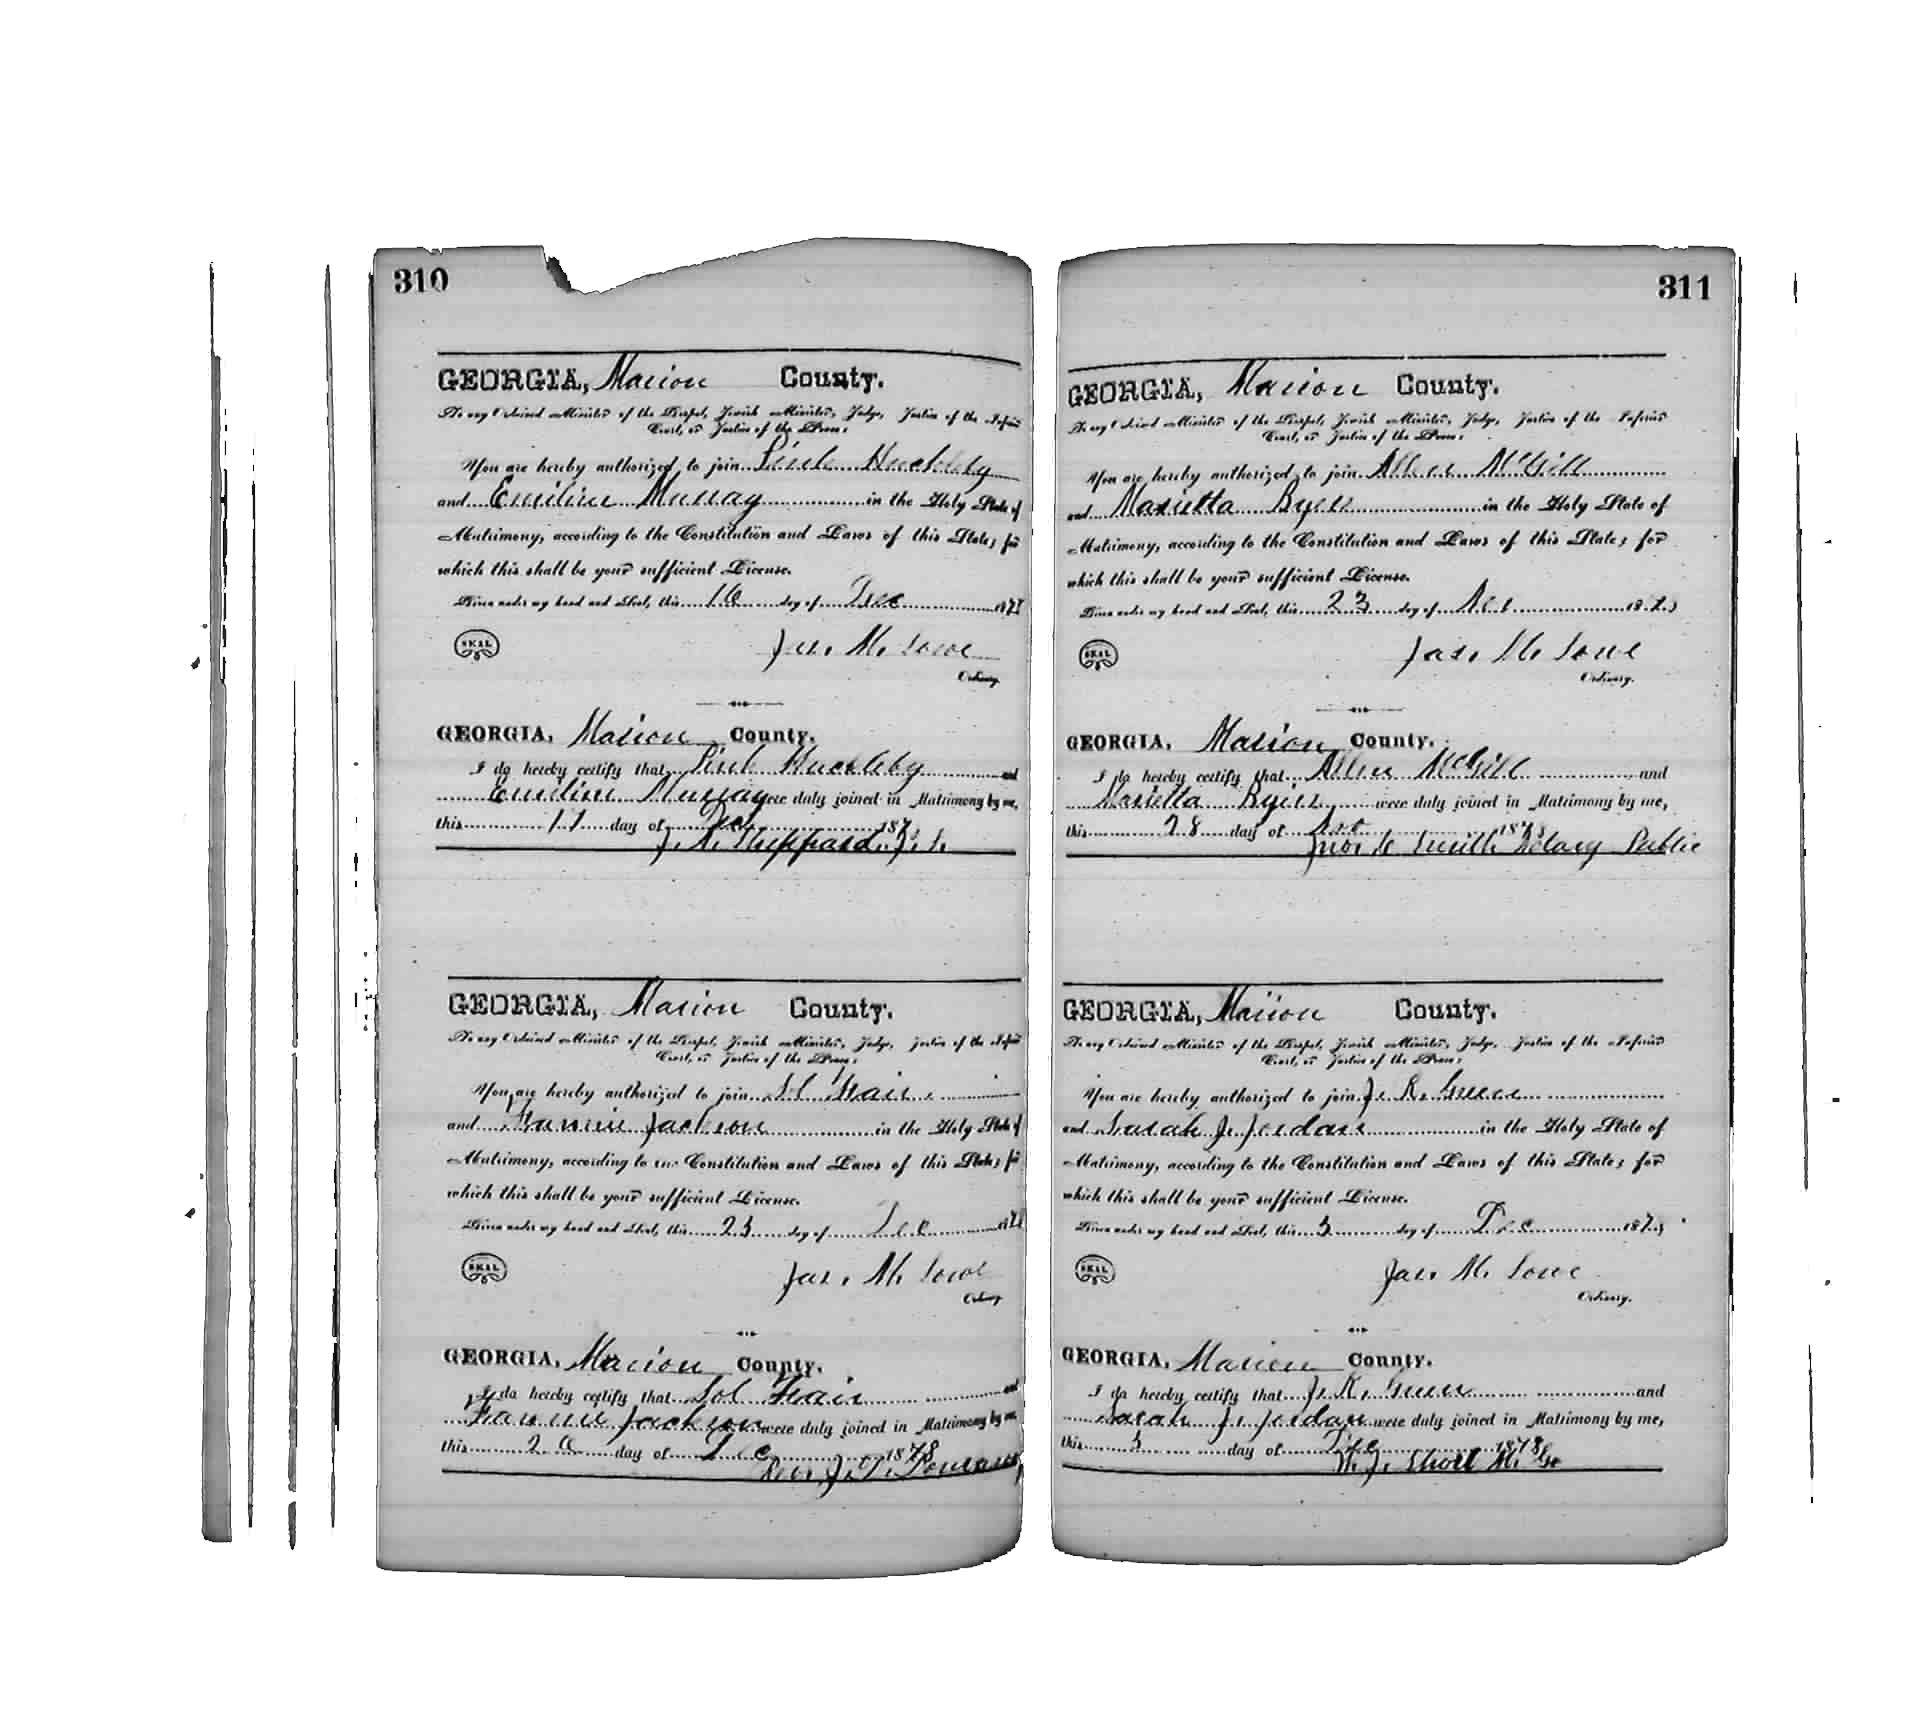 310
GEORGIA, Marion County.
To any Ordained Minister of the Gospel, Jewish Minister, Judge, Justice of the Inferior
Court, or Justice of the Peace:
You are hereby authorized to join Huckleby
and Emiline Murray in the Holy State of
Matrimony, according to the Constitution and Laws of this State; for
which this shall be your sufficient License.
Given under my hand and Seal, this 16 day of Dec 187
SEAL Jas. M. Lowe
Ordinary.
GEORGIA, Marion County.
I do hereby certify that Huckleby and
Emiline Murray were duly joined in Matrimony by me,
this day of Dec 187
J. A. Sheppard J. P.
GEORGIA, Marion County.
To any Ordained Minister of the Gospel, Jewish Minister, Judge, Justice of the Inferior
Court, or Justice of the Peace:
You are hereby authorized to join Sol Hair
and Fannie Jackson in the Holy State of
Matrimony, according to the Constitution and Laws of this State; for
which this shall be your sufficient License.
Given under my hand and Seal, this 23 day of Dec 187
SEAL Jas. M. Lowe
Ordinary
GEORGIA, Marion County.
I do hereby certify that Sol Hair and
Fannie Jackson were duly joined in Matrimony by me,
this 26 day of Dec 1878
Rev. J. T.
311
GEORGIA, Marion County.
To any Ordained Minister of the Gospel, Jewish Minister, Judge, Justice of the Inferior
Court, or Justice of the Peace:
You are hereby authorized to join Allen McGill
and Marietta Byers in the Holy State of
Matrimony, according to the Constitution and Laws of this State; for
which this shall be your sufficient License.
Given under my hand and Seal, this 23 day of 187
SEAL Jas. M. Lowe
Ordinary.
GEORGIA, Marion County.
I do hereby certify that Allen McGill and
Marietta Byers were duly joined in Matrimony by me,
this 28 day of 1878
Smith Notary Public
GEORGIA, Marion County.
To any Ordained Minister of the Gospel, Jewish Minister, Judge, Justice of the Inferior
Court, or Justice of the Peace:
You are hereby authorized to join J. R. Green
and Sarah J. Jordan in the Holy State of
Matrimony, according to the Constitution and Laws of this State; for
which this shall be your sufficient License.
Given under my hand and Seal, this 3 day of Dec 187
SEAL Jas. M. Lowe
Ordinary.
GEORGIA, Marion County.
I do hereby certify that J. R. Green and
Sarah J. Jordan were duly joined in Matrimony by me,
this 3 day of Dec 1878
W. J. Short M. G.